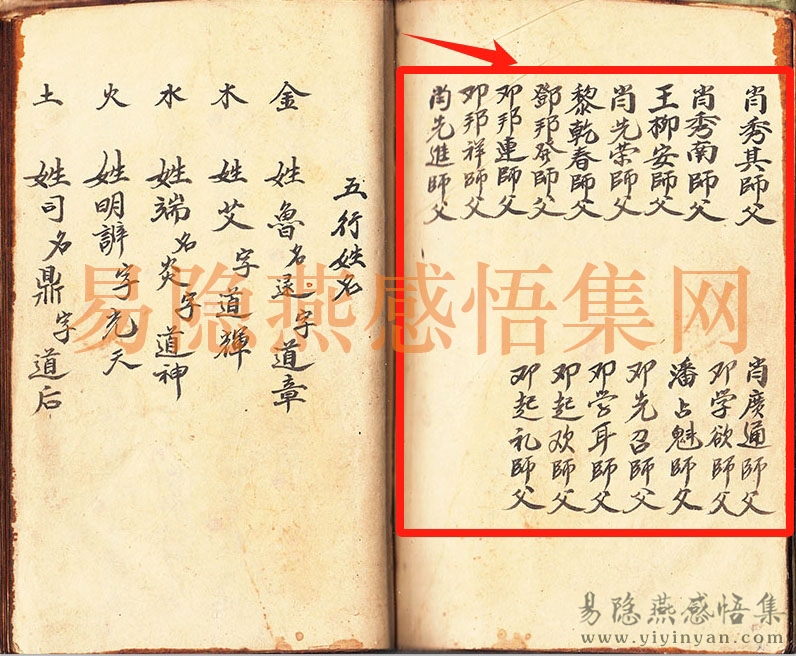 肖秀其師父
肖秀南師父
王柳安師父
肖先荣師父
黎乾春師父
鄧邦發師父
邓邦連師父
邓邦祥師父
肖先進師父
肖廣通師父
邓学欲師父
潘占魁師父
邓先召師父
邓学耳師父
邓起欢師父
邓起礼師父
五行姓名
金 姓魯名退字道章
木 姓艾字道輝
水 姓端名炎字道神
火 姓明辟字光天
土 姓司名鼎字道后
易隐燕感悟集网
易隐燕感悟集
www.yiyinyan.com